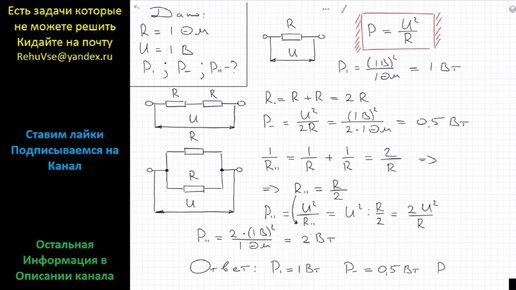 Есть задачи которые
не можете решить
Кидайте на почту
RehuVse@yandex.ru
Ставим лайки
Подписываемся на
Канал
Остальная
Информация в
Описании канала
Дано:
R = 1 Ом
U = 1 В
P₁ ; P₋ ; P₌ - ?
R
U
P = U²/R
P₁ = (1В)²/1Ом = 1 Вт
R R
U
R₋ = R + R = 2R
P₋ = U²/2R = (1В)²/2·1Ом = 0,5 Вт
R
R
U
1/R₌ = 1/R + 1/R = 2/R =>
=> R₌ = R/2
P₌ = U²/R₌ = U² : R/2 = 2U²/R
P₌ = 2·(1В)²/1Ом = 2 Вт
Ответ: P₁ = 1Вт P₋ = 0,5Вт P